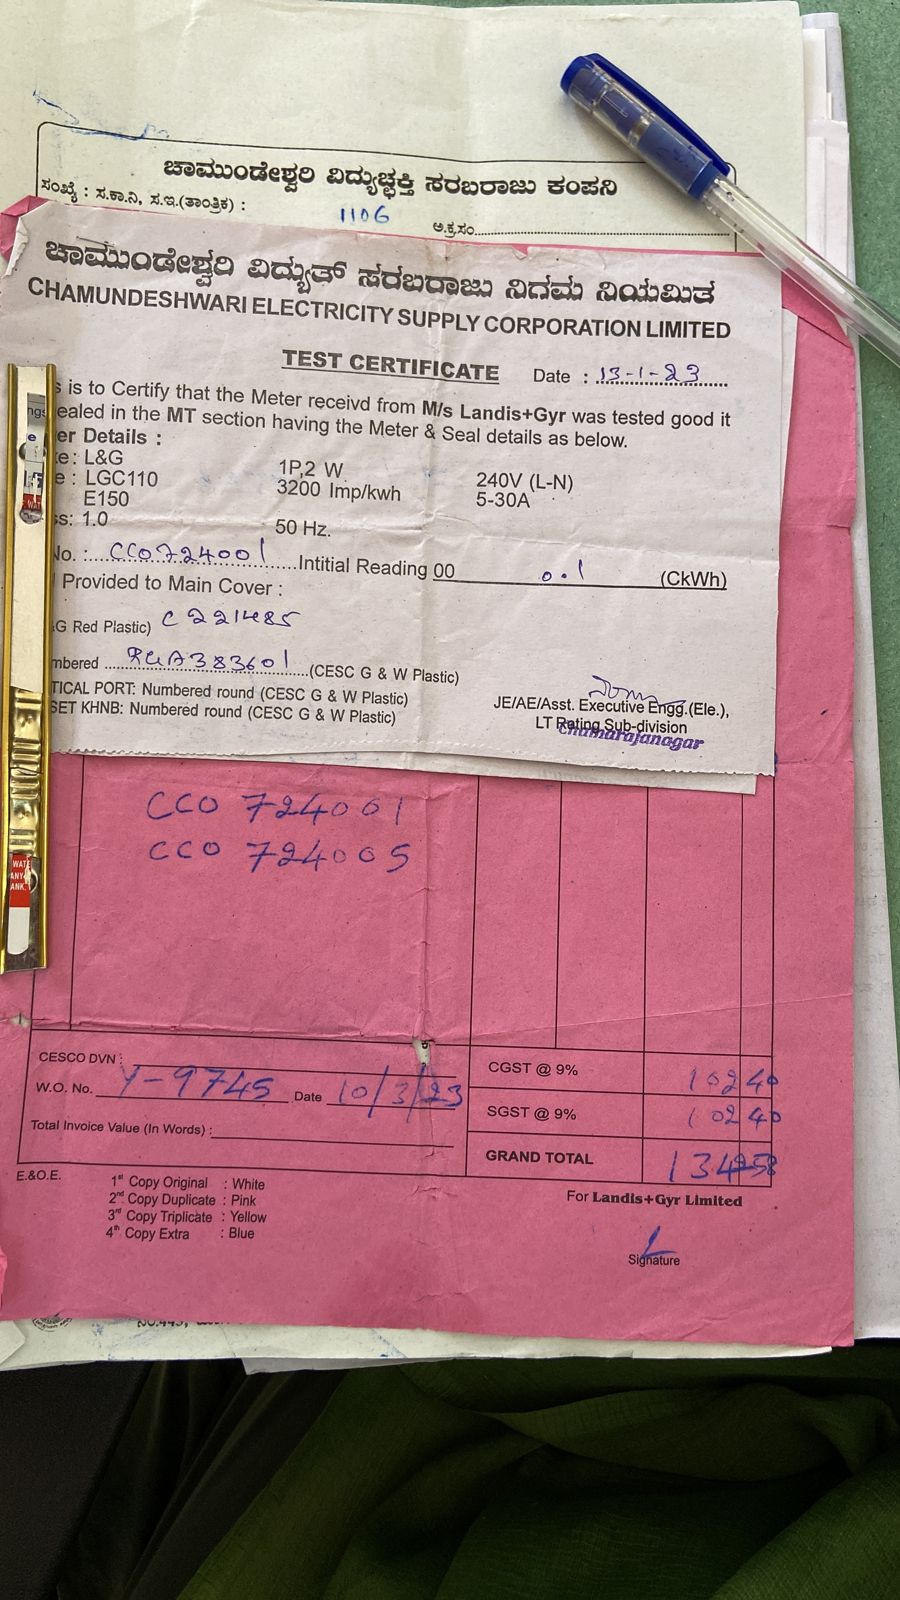 ಚಾಮುಂಡೇಶ್ವರಿ ವಿದ್ಯುಚ್ಛಕ್ತಿ ಸರಬರಾಜು ಕಂಪನಿ
ಸಂಖ್ಯೆ : ಸ.ಕಾ.ನಿ, ಸ.ಇ.(ತಾಂತ್ರಿಕ) : 1106
ಅ.ಕ್ರ.ಸಂ.
ಚಾಮುಂಡೇಶ್ವರಿ ವಿದ್ಯುತ್ ಸರಬರಾಜು ನಿಗಮ ನಿಯಮಿತ
CHAMUNDESHWARI ELECTRICITY SUPPLY CORPORATION LIMITED
TEST CERTIFICATE Date : 13-1-23
s is to Certify that the Meter receivd from M/s Landis+Gyr was tested good it
ealed in the MT section having the Meter & Seal details as below.
er Details :
e : L&G 1P,2 W. 240V (L-N)
e : LGC110 3200 Imp/kwh 5-30A
E150
ss: 1.0 50 Hz.
No. : CC0724001 Intitial Reading 00 0.1 (CkWh)
Provided to Main Cover :
G Red Plastic) C221485
mbered (CESC G & W Plastic)
TICAL PORT: Numbered round (CESC G & W Plastic)
SET KHNB: Numbered round (CESC G & W Plastic)
JE/AE/Asst. Executive Engg.(Ele.),
LT Rating Sub-division
Chamarajanagar
CC0 724001
CC0 724005
CESCO DVN :
W.O. No. Y-9745 Date 10/3/23
Total Invoice Value (In Words) :
CGST @ 9% 102 40
SGST @ 9% 102 40
GRAND TOTAL
E.&O.E.
1st Copy Original : White
2nd Copy Duplicate : Pink
3rd Copy Triplicate : Yellow
4th Copy Extra : Blue
For Landis+Gyr Limited
Signature